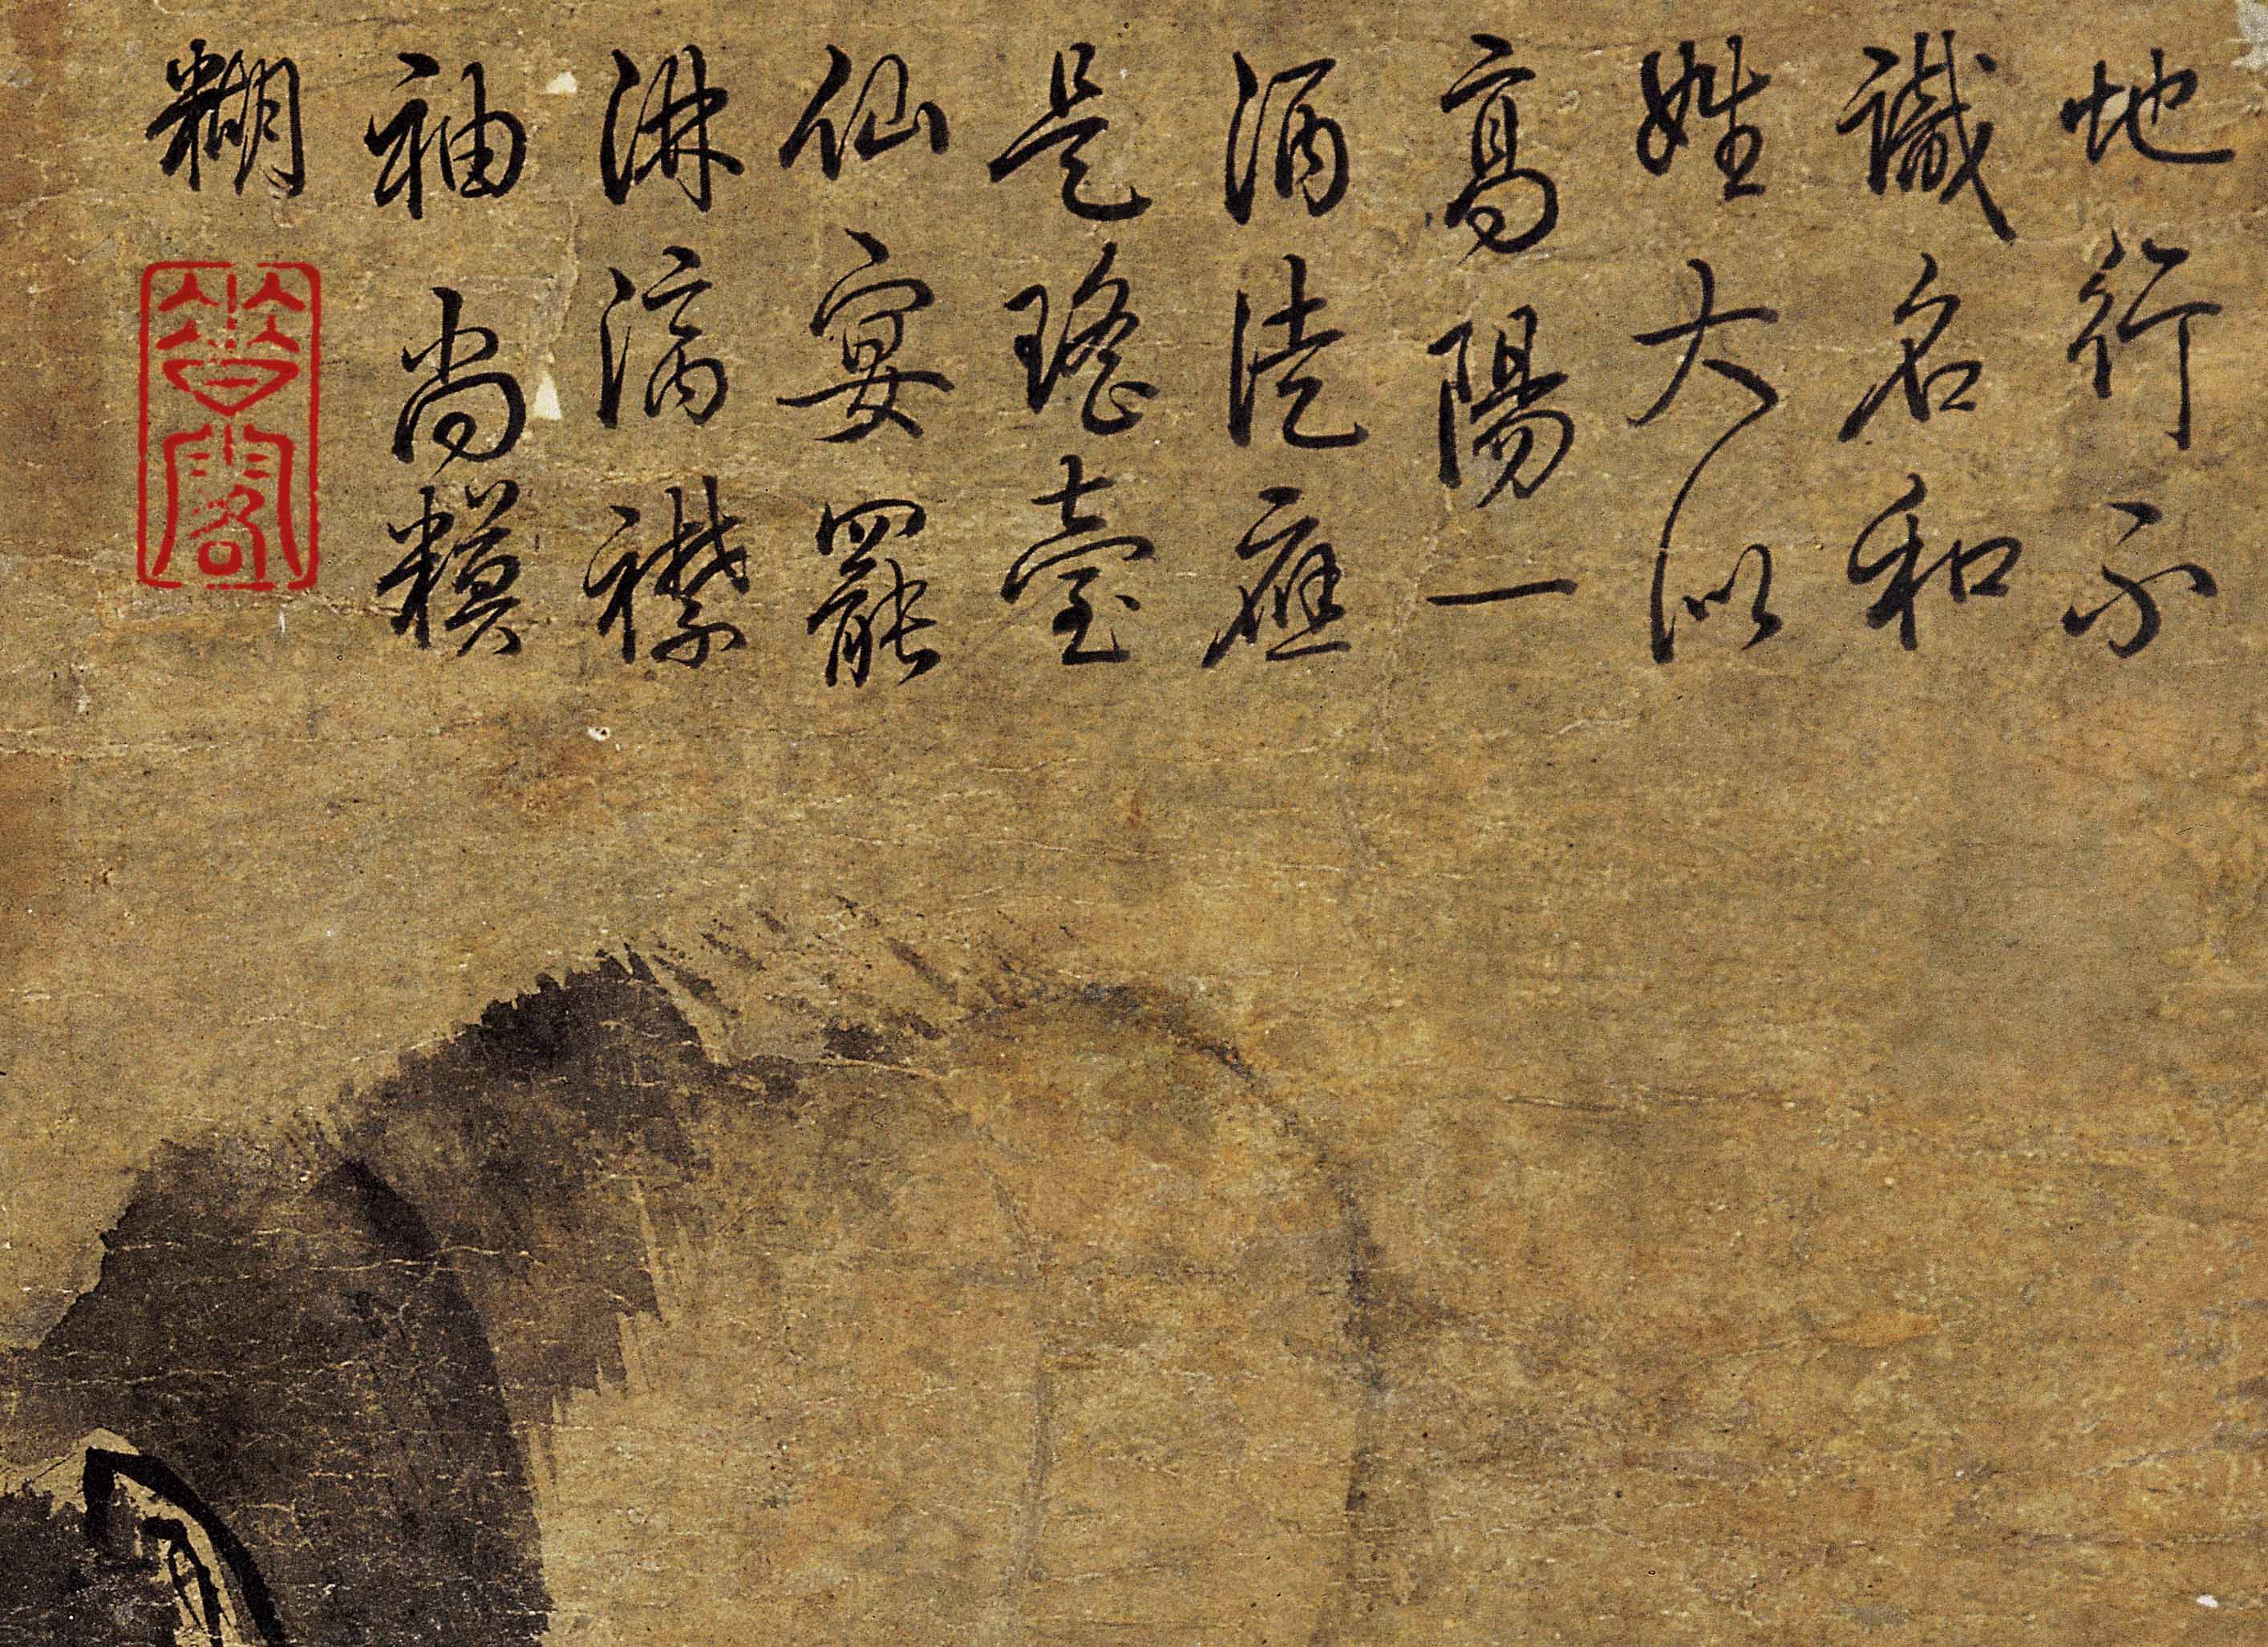 地行不
識名和
姓大似
高陽一
酒徒應
是瑤臺
仙宴罷
淋漓襟
袖尚糢
糊
閣